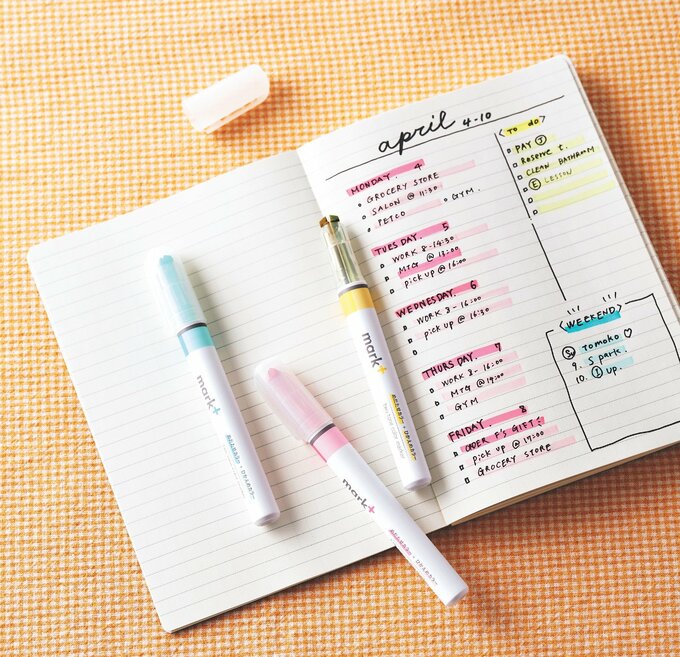 april 4-10
MONDAY. 4
GROCERY STORE
SALON @ 11:30
PETCO GYM.
TUESDAY. 5
WORK 8-14:30
MTG @ 18:00
pick up @ 16:00
WEDNESDAY. 6
WORK 8-16:00
pick up @ 16:30
THURSDAY. 7
WORK 8-16:00
MTG @ 19:00
GYM
FRIDAY 8
ODER F'S GIFT!
pick up @ 17:00
GROCERY STORE
<TO do>
PAY J
Reserve t.
CLEAN BATHROOM
E LESSON
<WEEKEND>
Tomoko ♡
9. S park.
10. I up.
mark+
mark+
mark+
two-tone color marker